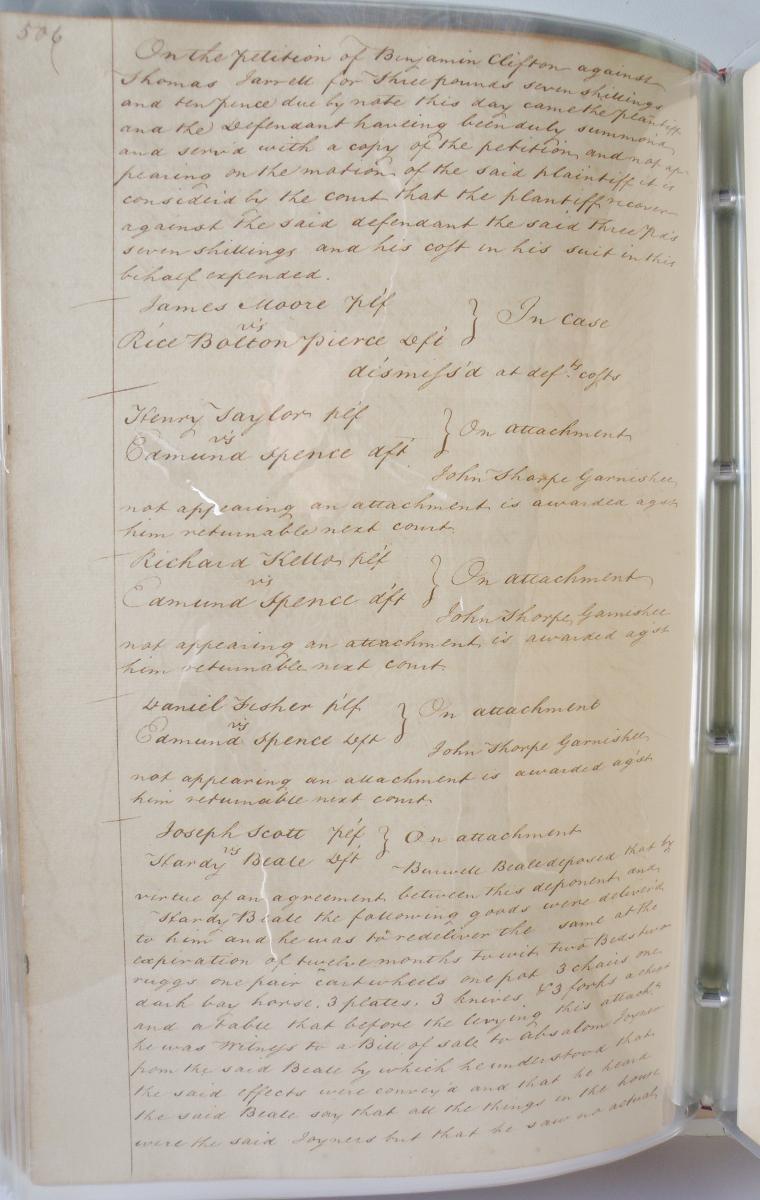 506
On the petition of Benjamin Clifton against
Thomas Jarrell for three pounds seven shillings
and ten pence due by note this day came the plantiff
and the Defendant haveing been duly summond
and serv'd with a copy of the petition and not ap
pearing on the motion of the said plaintiff it is
consider'd by the court that the plantiff recover
against the said defendant the said three p'ds
seven shillings and his cost in his suit in this
behalf expended.
James Moore plf
vs
Rice Bolton Pierce Dft } In case
dismiss'd at def.ts costs
Henry Taylor plf
vs
Edmund Spence dft } On attachment
John Thorpe Garnishee
not appearing an attachment is awarded agst
him returnable next court
Richard Kello plf
vs
Edmund Spence dft } On attachment
John Thorpe Garnishee
not appearing an attachment is awarded ag'st
him returnable next court
Daniel Fisher plf
vs
Edmund Spence Dft } On attachment
John Thorpe Garnishee
not appearing an attachment is awarded ag'st
him returnable next court
Joseph Scott plf
vs
Hardy Beale Dft } On attachment
Burwell Beale deposed that by
virtue of an agreement between this deponent and
Hardy Beale the following goods were deliver'd
to him and he was to redeliver the same at the
expiration of twelve months to wit two Beds two
ruggs one pair cart wheels one pot 3 chairs one
dark bay horse. 3 plates. 3 knives. & 3 forks a chest
and a table that before the levying this attach.t
he was Witness to a Bill of sale to Absalom Joyner
from the said Beale by which he understood that
the said effects were convey'd and that he heard
the said Beale say that all the things in the house
were the said Joyners but that he saw no actual